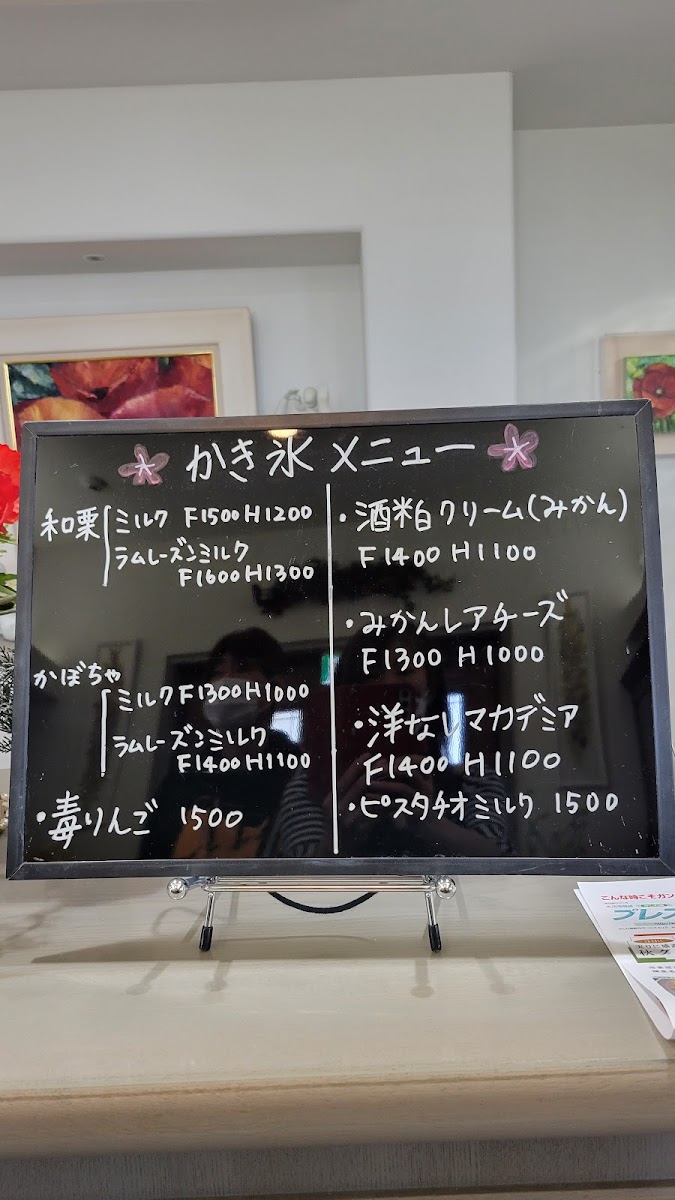 かき氷 メニュー
和栗
ミルク F1500 H1200
ラムレーズンミルク
F1600 H1300
かぼちゃ
ミルク F1300 H1000
ラムレーズンミルク
F1400 H1100
・毒りんご 1500
・酒粕クリーム(みかん)
F1400 H1100
・みかんレアチーズ
F1300 H1000
・洋なしマカデミア
F1400 H1100
・ピスタチオミルク 1500
こんな時こそガン
ブレス